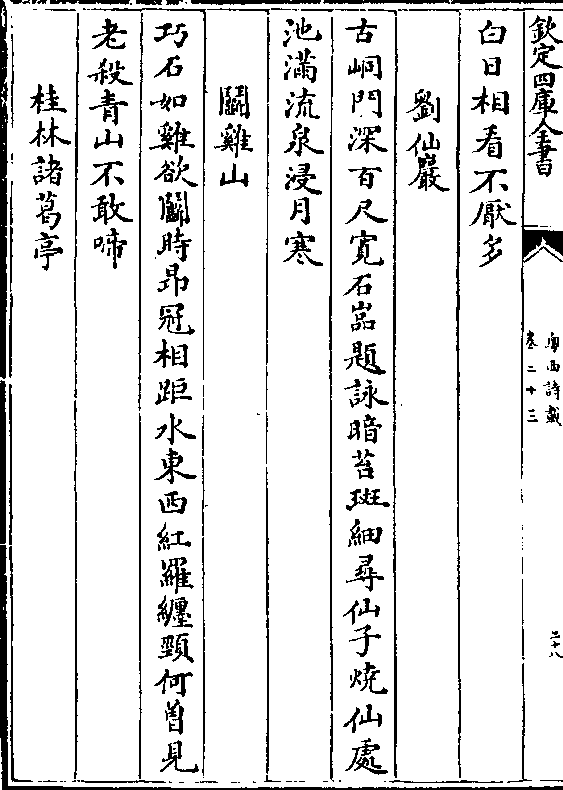 欽定四庫全書
粵西詩載
卷二十三
二十八
白日相看不厭多
劉仙巖
古峒門深百尺寬石嵓題詠暗苔斑細尋仙子燒仙處
池滿流泉浸月寒
鬭雞山
巧石如雞欲鬭時昂冠相距水東西紅羅纏頸何曽見
老殺青山不敢啼
桂林諸葛亭